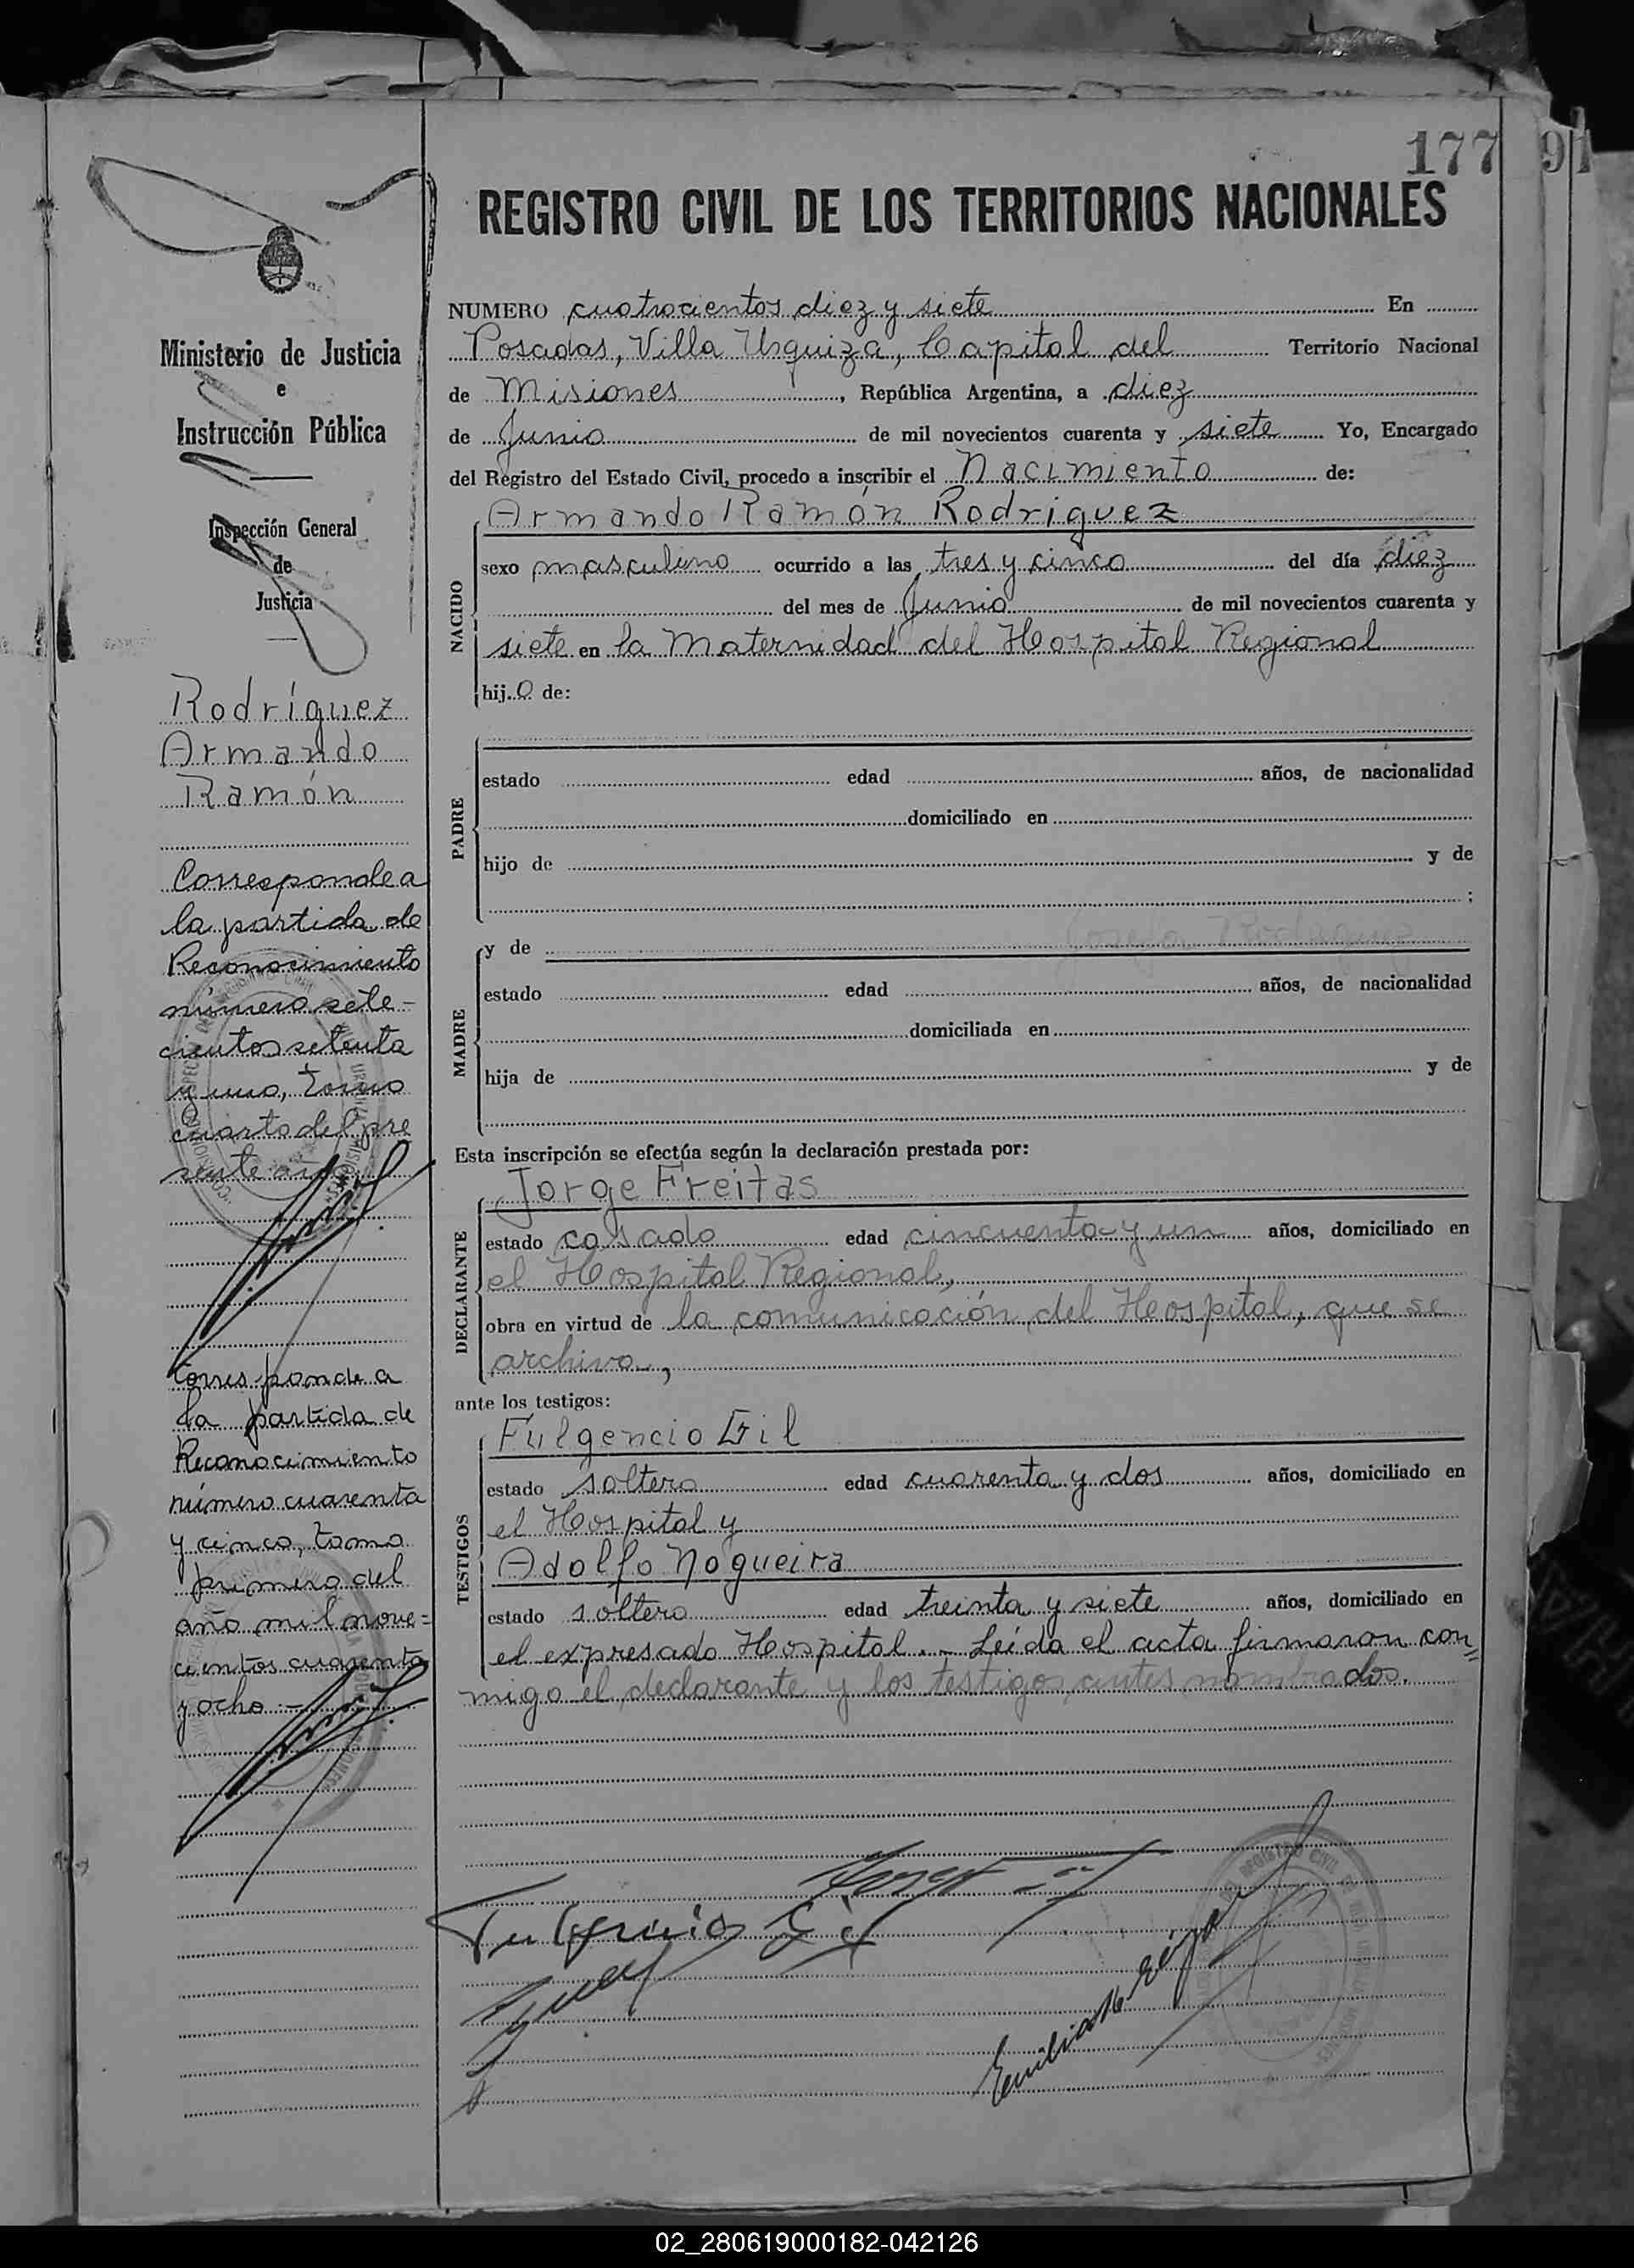 177
91
REGISTRO CIVIL DE LOS TERRITORIOS NACIONALES
Ministerio de Justicia
e
Instrucción Pública
Inspección General
de
Justicia
Rodríguez
Armando
Ramón
Corresponde a
la partida de
Reconocimiento
número sete-
cientos setenta
y uno, tomo
cuarto del pre
sente año
Corresponde a
la partida de
Reconocimiento
número cuarenta
y cinco, tomo
primero del
año mil nove=
cientos cuarenta
y ocho.-
NUMERO cuatrocientos diez y siete En
Posadas, Villa Urquiza, Capital del Territorio Nacional
de Misiones, República Argentina, a diez
de Junio de mil novecientos cuarenta y siete Yo, Encargado
del Registro del Estado Civil, procedo a inscribir el Nacimiento de:
NACIDO
Armando Ramón Rodriguez
sexo masculino ocurrido a las tres y cinco del día diez
del mes de Junio de mil novecientos cuarenta y
siete en la Maternidad del Hospital Regional
hijo de:
PADRE
estado edad años, de nacionalidad
domiciliado en
hijo de y de
;
MADRE
y de
estado edad años, de nacionalidad
domiciliada en
hija de y de
Esta inscripción se efectúa según la declaración prestada por:
DECLARANTE
Jorge Freitas
estado casado edad cincuenta y un años, domiciliado en
el Hospital Regional,
obra en virtud de la comunicación del Hospital, que se
archiva,
ante los testigos:
TESTIGOS
Fulgencio Gil
estado soltero edad cuarenta y dos años, domiciliado en
el Hospital y
Adolfo Nogueira
estado soltero edad treinta y siete años, domiciliado en
el expresado Hospital.- Leída el acta firmaron con=
migo el declarante y los testigos antes nombrados.
Fulgencio Gil
02_280619000182-042126